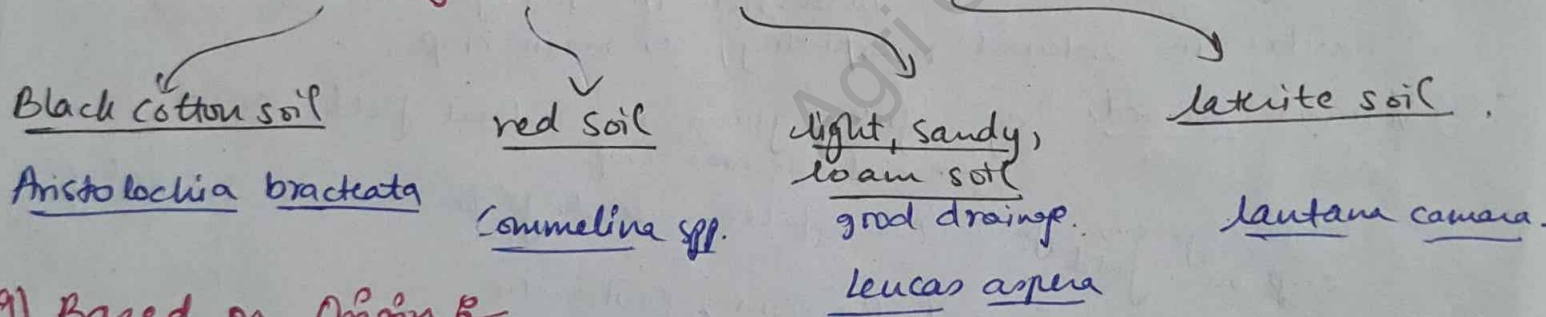 Black cotton soil
Aristolochia bracteata
red soil
Commelina spp.
light, sandy,
loam soil
good drainge.
Leucas aspera
laterite soil.
lantana camara.
9) Based on
Agri